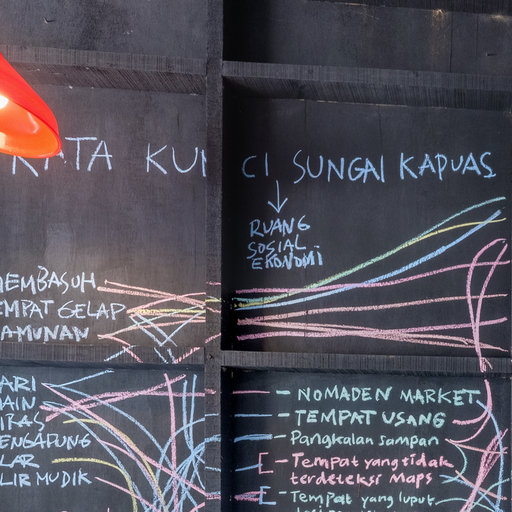 KATA KUNCI SUNGAI KAPUAS
RUANG
SOSIAL
EKONOMI
MEMBASUH
TEMPAT GELAP
LAMUNAN
MENGAPUNG
ILIR MUDIK
- NOMADEN MARKET
- TEMPAT USANG
- Pangkalan Sampan
- Tempat yang tidak
terdeteksi Maps
- Tempat yang luput